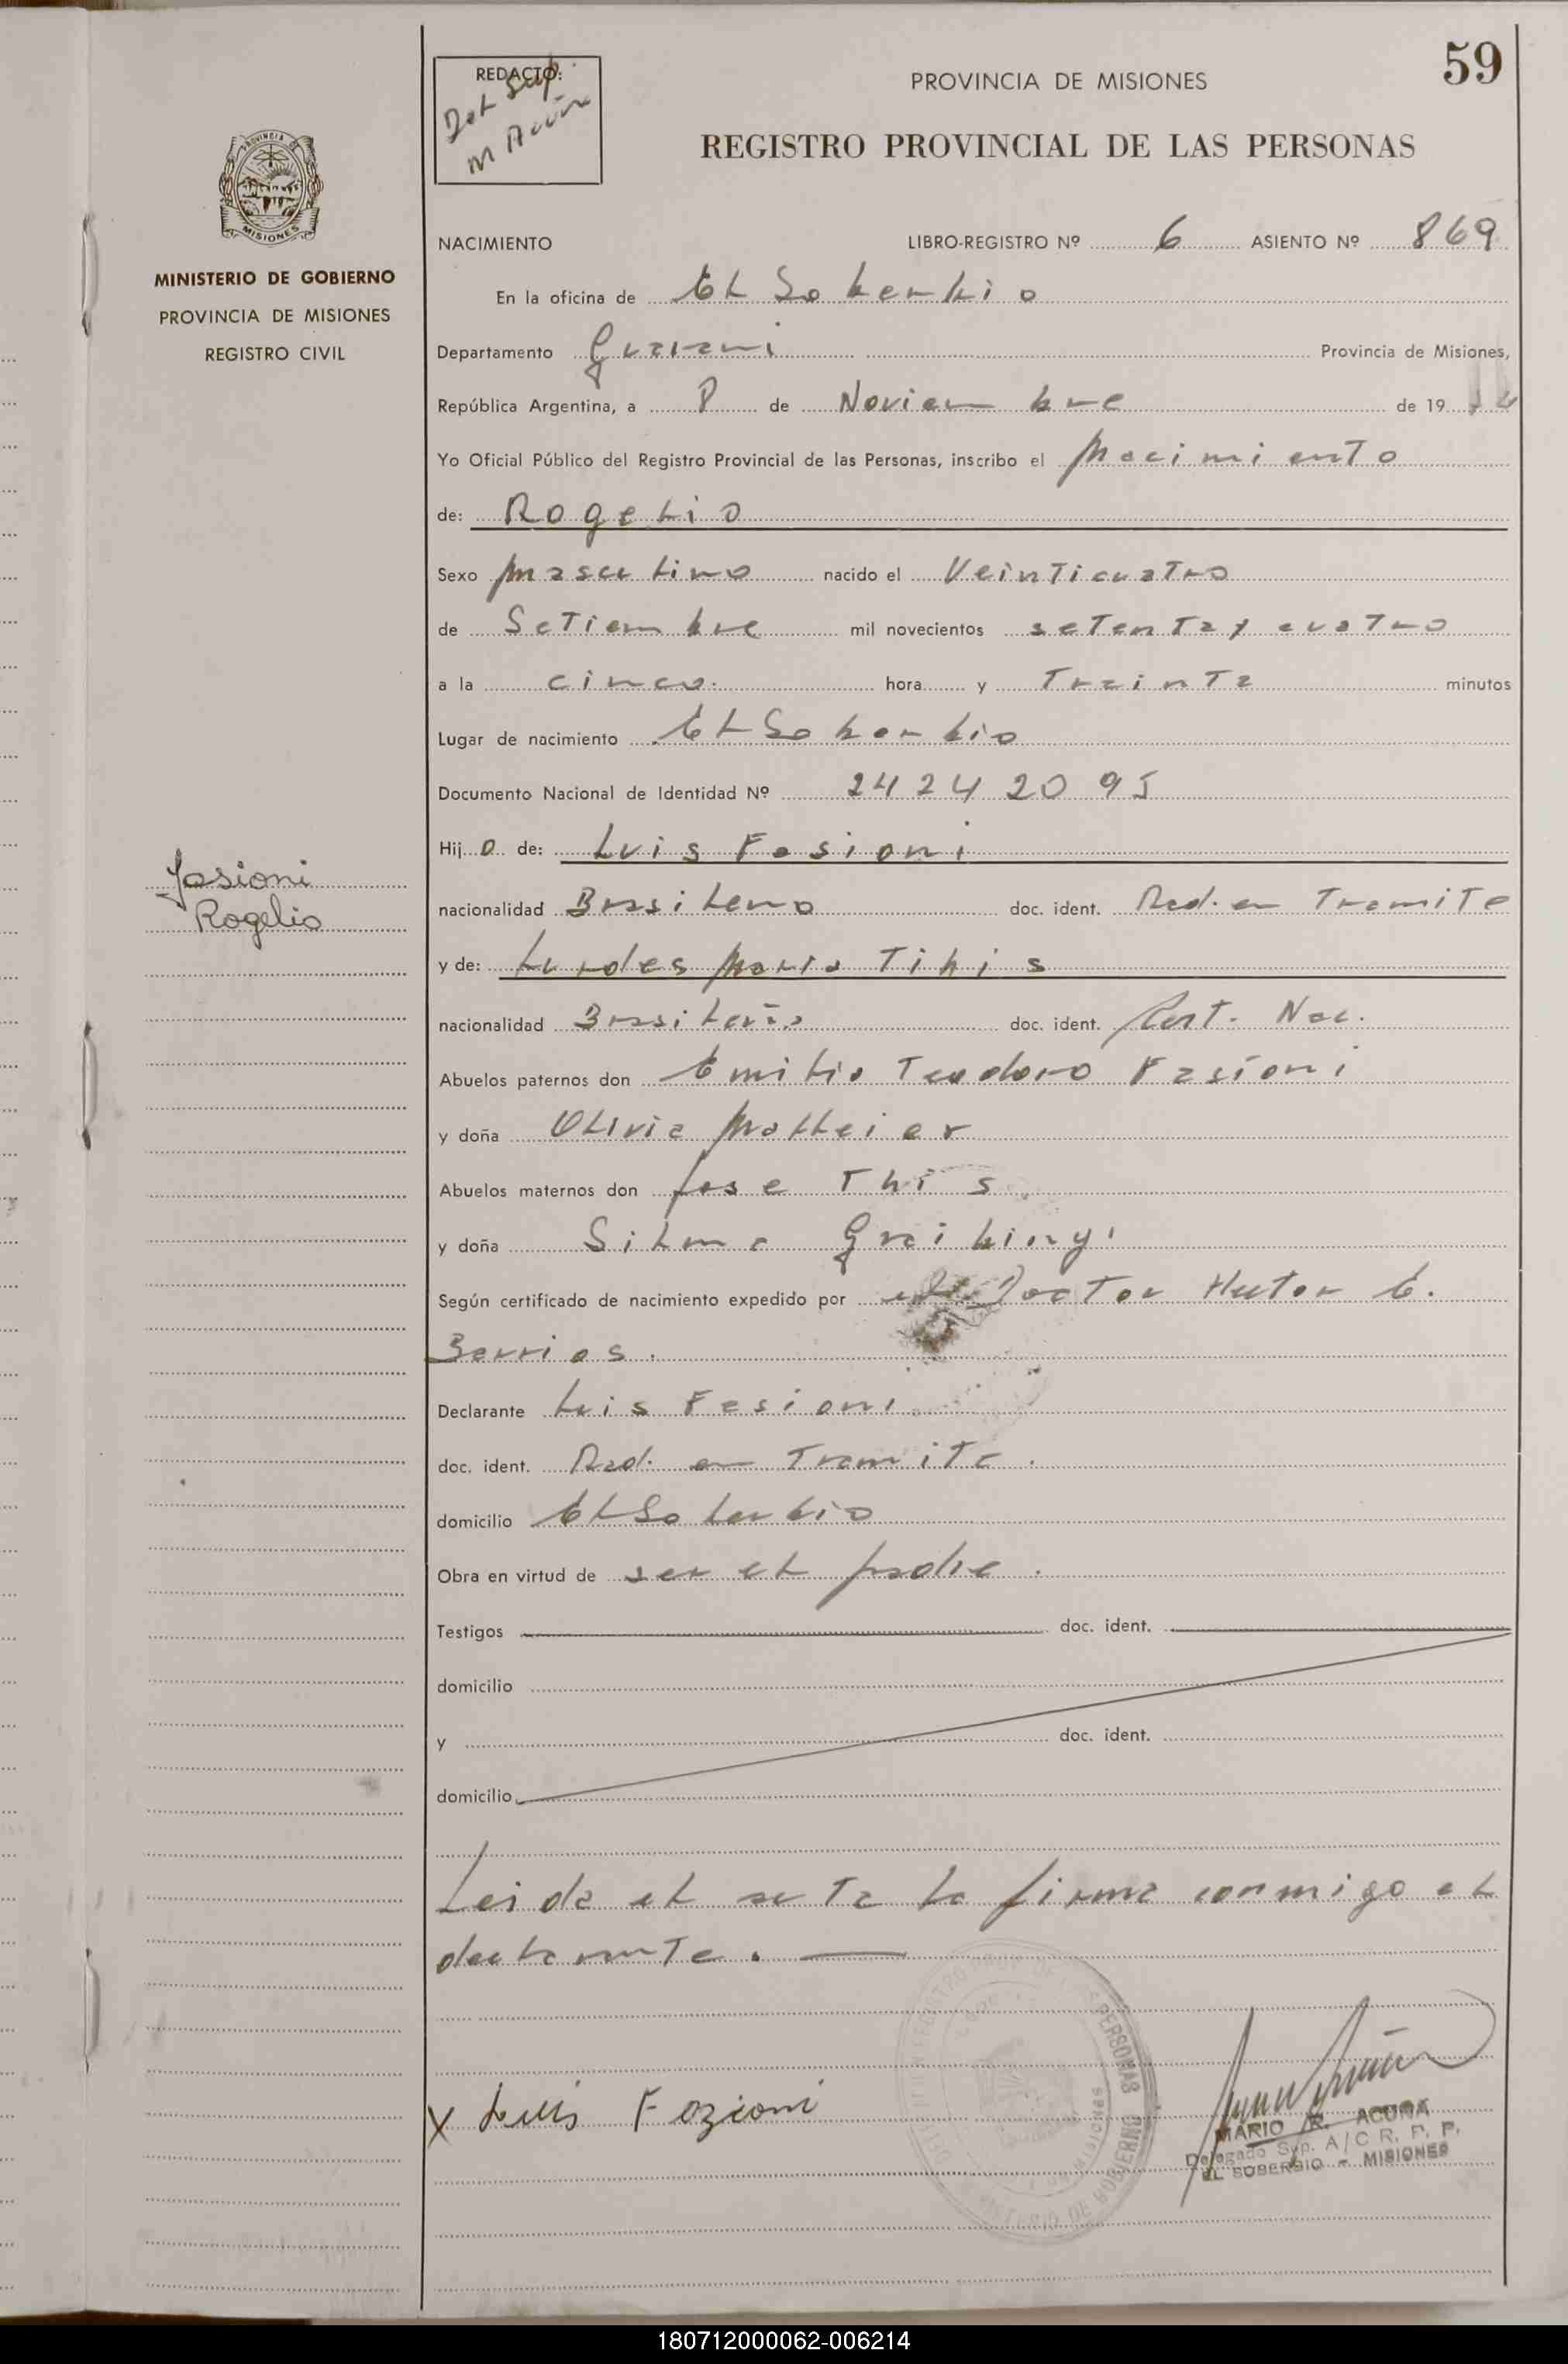 59
REDACTÓ:
Del Sup.
M Acuña
PROVINCIA DE MISIONES
REGISTRO PROVINCIAL DE LAS PERSONAS
PROVINCIA DE
MISIONES
MINISTERIO DE GOBIERNO
PROVINCIA DE MISIONES
REGISTRO CIVIL
NACIMIENTO LIBRO-REGISTRO Nº 6 ASIENTO Nº 869
En la oficina de El Soberbio
Departamento Guarani Provincia de Misiones,
República Argentina, a 8 de Noviembre de 19
Yo Oficial Público del Registro Provincial de las Personas, inscribo el Nacimiento
de: Rogelio
Sexo masculino nacido el Veinticuatro
de Setiembre mil novecientos setenta y cuatro
a la cinco. hora y Treinta minutos
Lugar de nacimiento El Soberbio
Documento Nacional de Identidad Nº 24242095
Hijo de: Luis Fasioni
Fasioni
Rogelio
nacionalidad Brasileno doc. ident. Rad. en Tramite
y de: Lurdes Maria Tihis
nacionalidad Brasileña doc. ident. Cert. Nac.
Abuelos paternos don Emilio Teodoro Fasioni
y doña Olivia Malleier
Abuelos maternos don Jose This
y doña Silma
Según certificado de nacimiento expedido por el Doctor Hector E.
Barrios.
Declarante Luis Fasioni
doc. ident. Rad. en Tramite.
domicilio El Soberbio
Obra en virtud de ser el padre.
Testigos doc. ident.
domicilio
y doc. ident.
domicilio
Leida el acta la firma conmigo el
declarante.
X Luis Fozioni
PERSONAS
MISIONES
DE GOBIERNO
MARIO R. ACUÑA
Delegado Sup. A/C R. P. P.
EL SOBERBIO - MISIONES
180712000062-006214